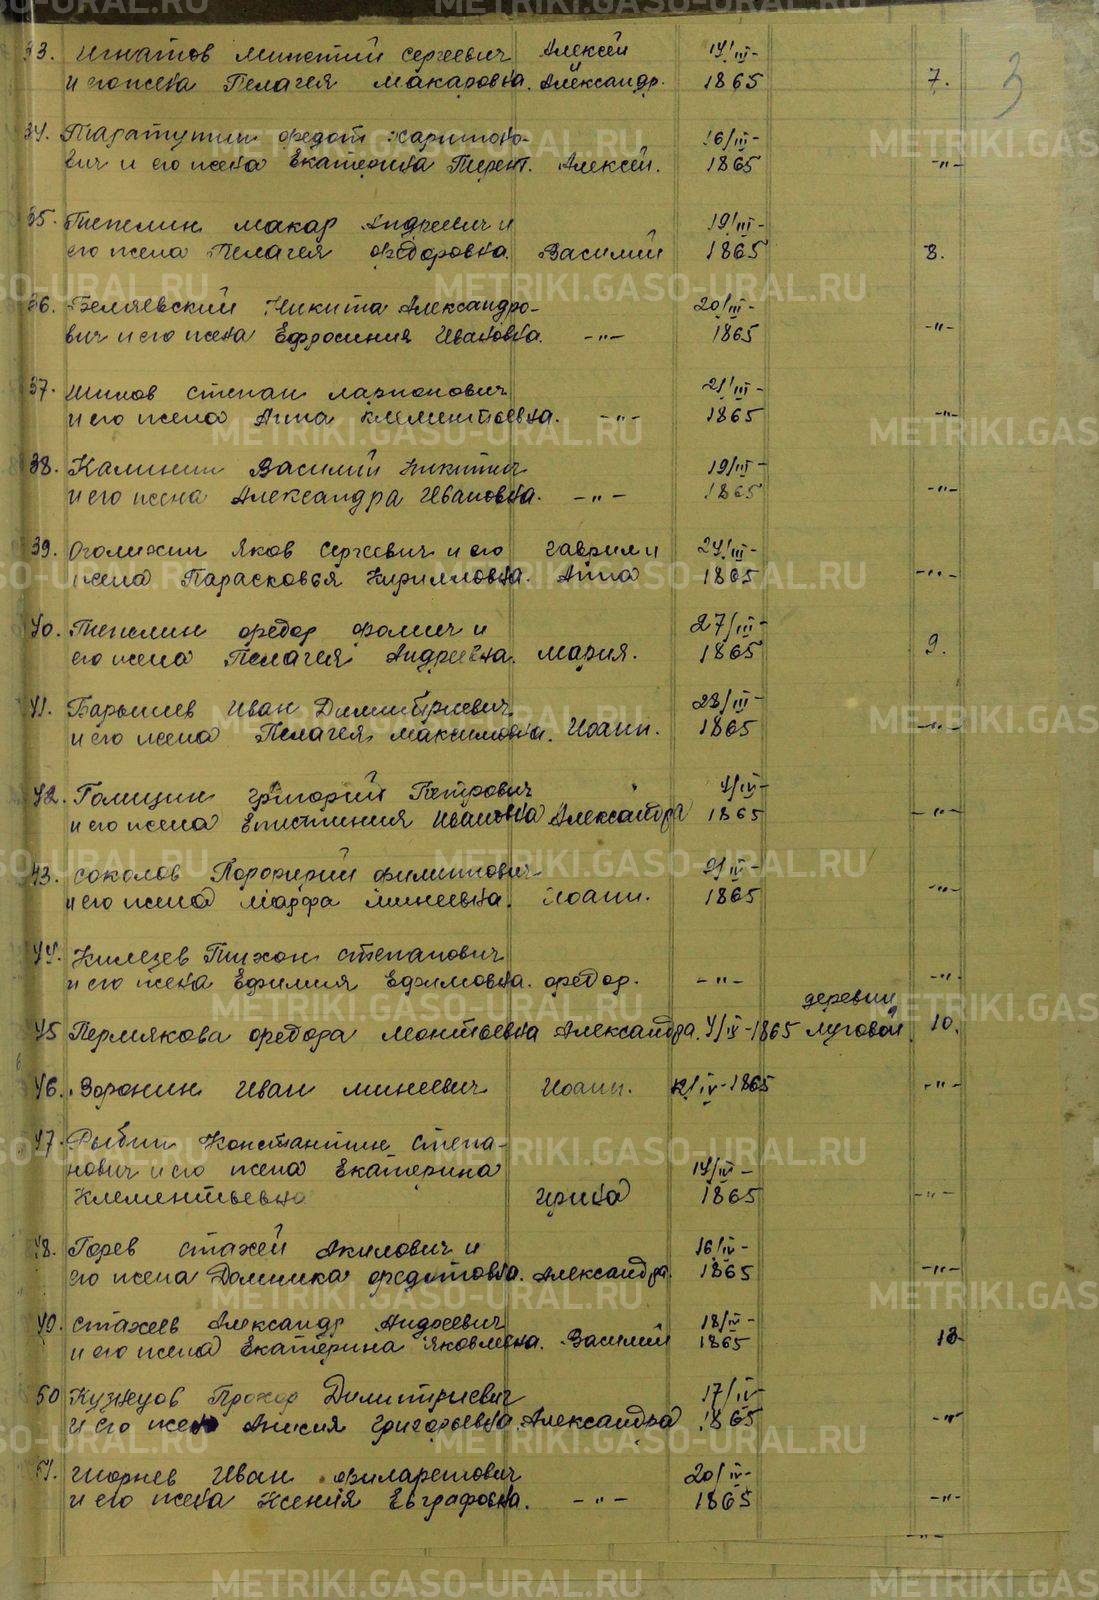 3
33. Игнатов Милетий Сергеевич Алексей 14/III-
и его жена Пелагея Макаровна. и Александр. 1865 7.
34. Таратунин Федот Харитоно- 16/III-
вич и его жена Екатерина Терент. Алексей. 1865 -"-
35. Теплин Макар Андреевич и 19/III-
его жена Пелагея Федоровна. Василий 1865 8.
36. Беляевский Никита Александро- 20/III-
вич и его жена Ефросиния Ивановна. -"- 1865 -"-
37. Шилов Степан Ларионович 21/III-
и его жена Анна Клементьевна. -"- 1865 -"-
38. Калинин Василий Никитич 19/III-
и его жена Александра Ивановна. -"- 1865 -"-
39. Оголихин Яков Сергеевич и его Гаврил и 24/III-
жена Парасковья Кирилловна. Анна 1865 -"-
40. Теплин Федор Фомич и 27/III-
его жена Пелагея Андреевна. Мария. 1865 9.
41. Барышев Иван Димитриевич 28/III-
и его жена Пелагея Максимовна. Иоанн. 1865 -"-
42. Голицин Григорий Петрович 4/IV-
и его жена Епистиния Ивановна Александра 1865 -"-
43. Соколов Порфирий Филиппович 2/IV-
и его жена Марфа Минеевна. Иоанн. 1865 -"-
44. Тихон Степанович
и его жена Ефимия Ефимовна. Федор. -"- -"-
деревни
45 Пермякова Федора Монтьевна Александра. 4/IV-1865 Луговой 10.
46. Воронин Иван Минеевич Иоанн. IV-1865 -"-
47. Рыбин Константин Степа-
нович и его жена Екатерина 14/IV-
Клементьевна Ирина 1865 -"-
48. Горев Стахей Акилович и 16/IV-
его жена Домника Федотовна. Александра. 1865 -"-
49. Стахеев Александр Андреевич 18/IV-
и его жена Екатерина Яковлевна. Василий 1865 13
50 Кузнецов Прохор Димитриевич 17/IV-
и его жена Анисия Григорьевна. Александра 1865 -"-
51. Иван Филаретович 20/IV-
и его жена Ксения Евграфовна. -"- 1865 -"-
-"-
METRIKI.GASO-URAL.RU